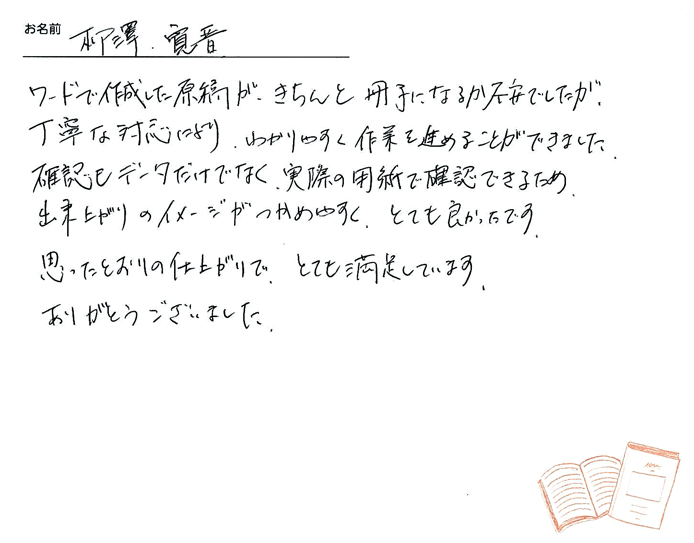 お名前 柳澤 寛晋
ワードで作成した原稿が、きちんと冊子になるか不安でしたが、
丁寧な対応により、わかりやすく作業を進めることができました。
確認もデータだけでなく、実際の用紙で確認できるため、
出来上がりのイメージがつかめやすく、とても良かったです。
思ったとおりの仕上がりで、とても満足しています。
ありがとうございました。